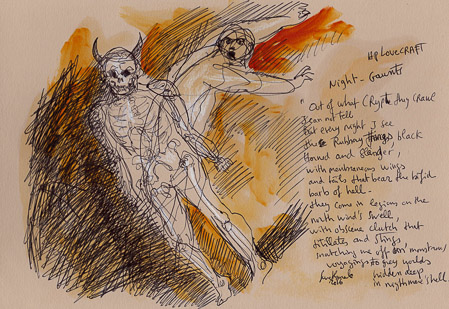 HP LOVECRAFT
Night-Gaunts
" Out of what Crypt they Crawl
I can not tell
But every night I see
the Rubbery things black
horned and slender,
with membraneous wings
and tails that bear the bifid
barb of hell -
they come in legions on the
north wind's swell,
with obscene clutch that
titillates and stings,
snatching me off on monstrous
voyagings to grey worlds
hidden deep
in nightmare's hell.